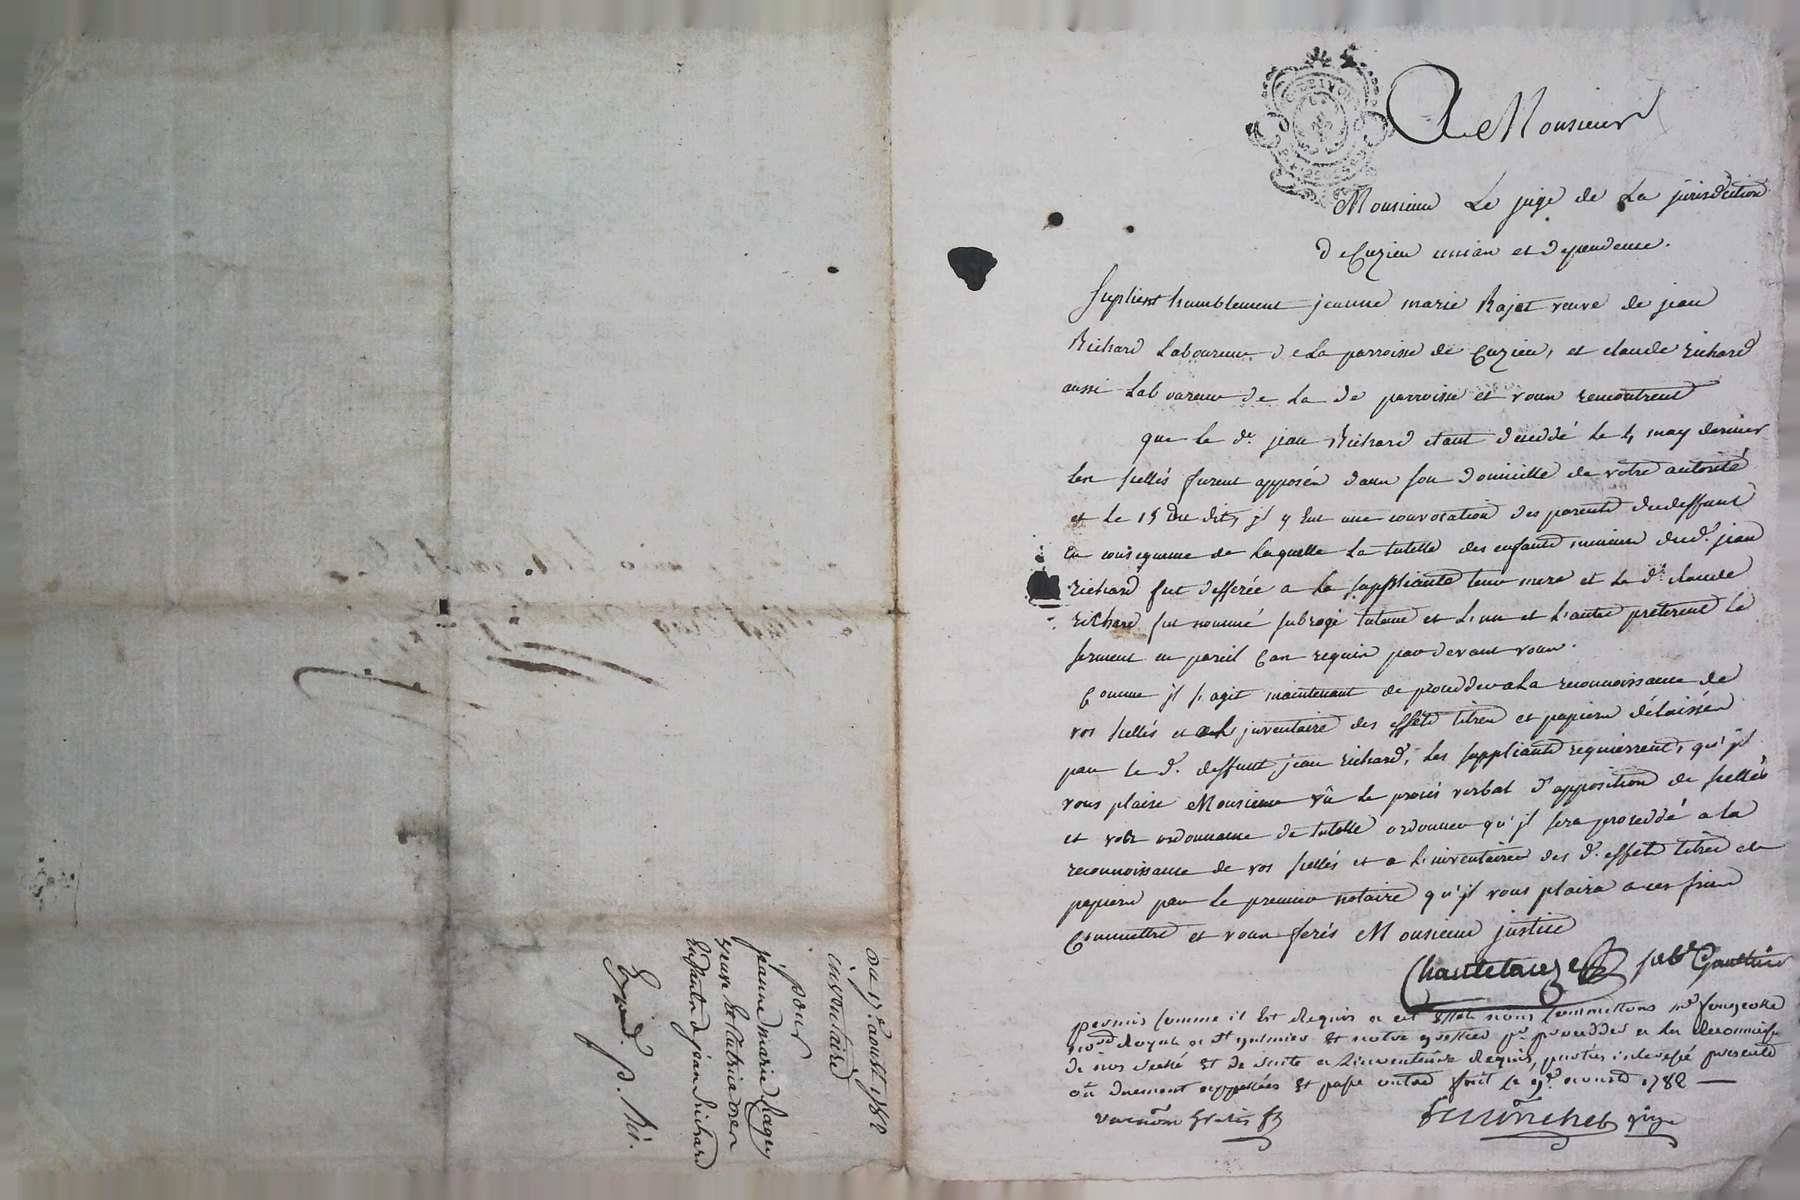 A Monsieur
Monsieur Le juge de La jurisdiction
de Cuzieu unias et dependence.
Suplient humblement jeanne marie Rajat veuve de jean
Richard Laboureur de La parroisse de Cuzieu, et claude richard
aussi Laboureur de La de parroisse et vous remontrent
que le d. jean Richard etant decedé le 4 may dernier
les scellés furent apposés dans son domicille de votre autorité
et le 15 du dit, jl y eut une convocation des parents du deffunt
en consequence de laquelle la tutelle des enfants mineurs du d. jean
richard fut defferée a la suppliante leur mere et le d. claude
richard fut nommé subrogé tuteur et l'un et l'autre preterent le
serment en pareil cas requis pardevant vous.
Comme jl s'agit maintenant de proceder a La reconnoissance de
vos scellés et a L'inventaire des effets titres et papiers délaissés
par le d. deffunt jean richard, Les suppliants requierrent, qu'jl
vous plaise Monsieur vû le procès verbal d'apposition de scellés
et votre ordonnance de tutelle ordonner qu'jl sera procedé a la
reconnoissance de vos scellés et a L'inventaire des d. effets titres et
papiers par le premier notaire qu'jl vous plaira a ces fins
Commettre et vous ferés Monsieur justice
Chantelauze subt Gaultier
permis comme il Est Requis a cet effet nous Commettons me fougerolle
nore Royal a st galmier Et notre greffier pr proceder a la Reconnoisse
de nos scellé Et de suite a L'inventaire Requis, parties interessé presente
où duement appellées Et passé outre fait le 9e aoust 1782
gratis
juge
du 17e aoust 1782
inventaire
pour
jeanne marie Ragey
veuve Et tutrice des
Enfants de jean Richard